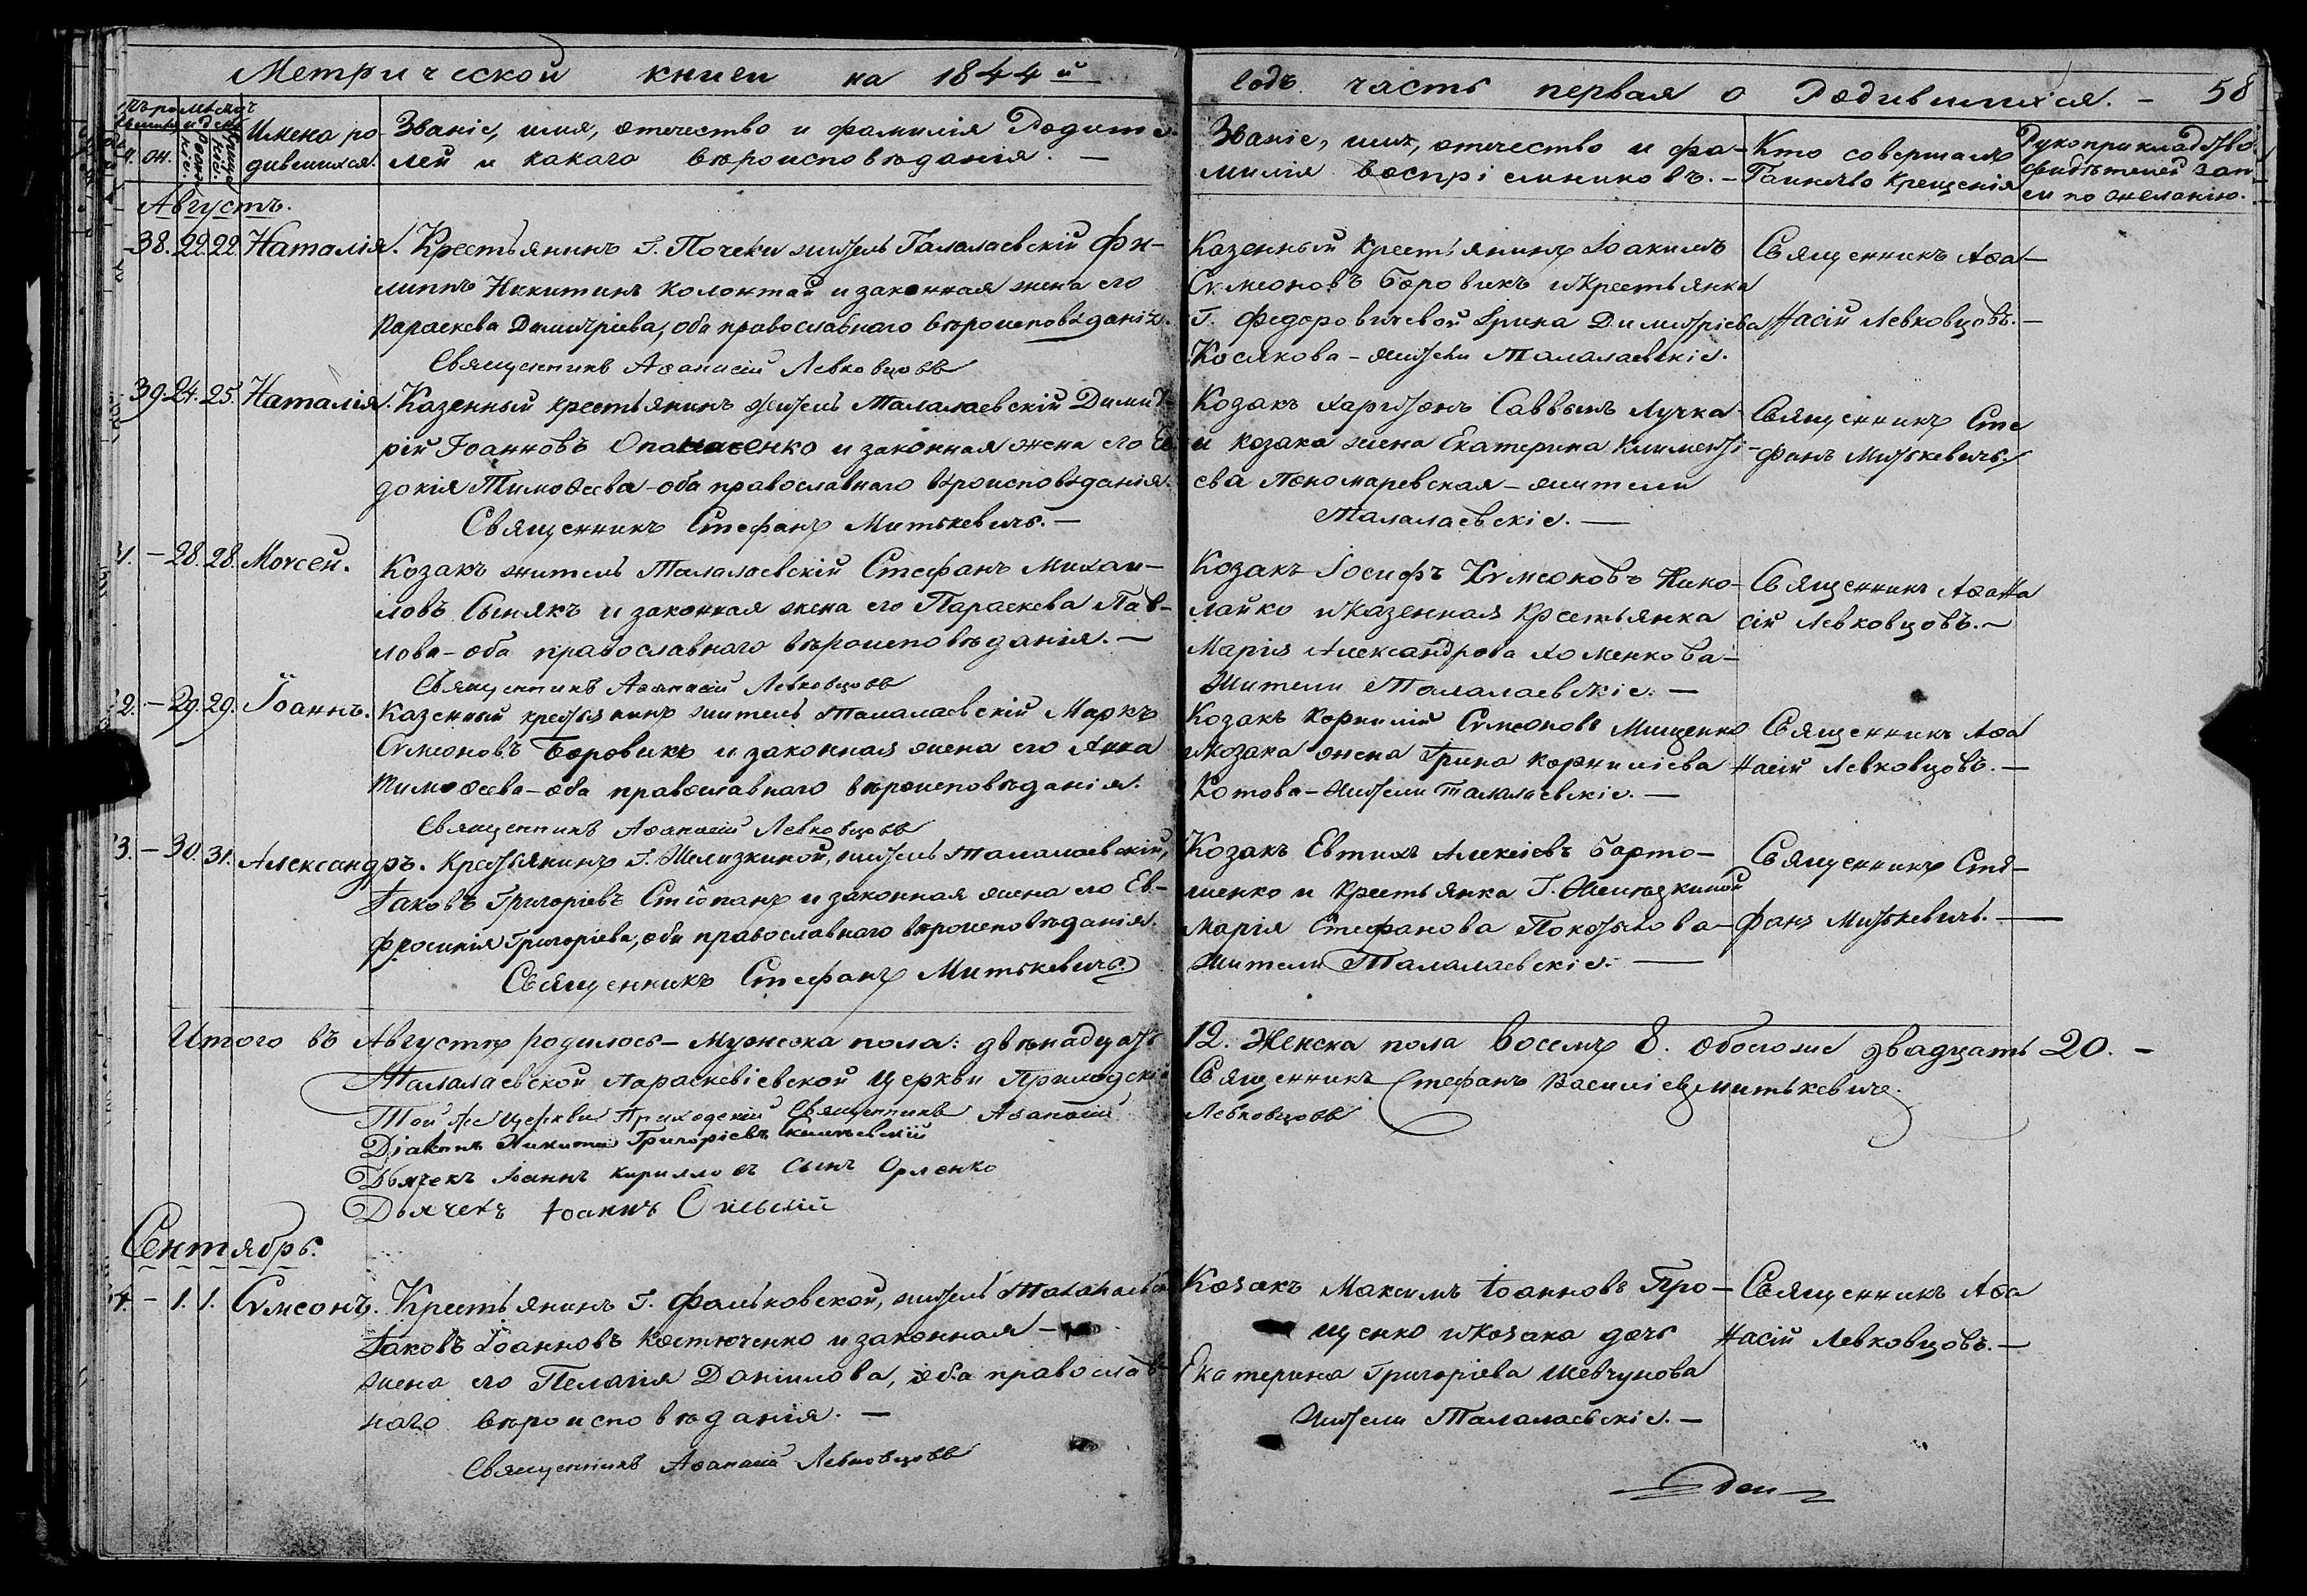 Метрической книги на 1844й
годъ часть первая о Родившихся. – 58
Имена ро-
дившихся.
Званіе, имя, отечество и фамилія Родите-
лей и какаго вѣроисповѣданія. –
Званіе, имя, отечество и фа-
милія воспріемниковъ. –
Кто совершалъ
Таинство крещенія
Рукоприкладство
свидѣтелей зап
си по желанію.
Августъ.
38. 22. 22. Наталія. Крестьянинъ Г. Почеки житель Талалаевскій Фи-
липпъ Никитинъ Колонтай и законная жена его
Параскева Димитріева, оба православнаго вѣроисповѣданія.
Священникъ Аѳанасій Левковцовъ
Казенный крестьянинъ Іоакимъ
Сѵмеоновъ Боровикъ и крестьянка
Г. Федоровичевой Ірина Димитріева
Косякова – жители Талалаевскіе.
Священникъ Аѳа–
насій Левковцовъ. –
39. 24. 25. Наталія. Казенный крестьянинъ житель Талалаевскій Димит-
рій Іоанновъ Опанасенко и законная жена его Ев
докія Тимоѳеева – оба православнаго вѣроисповѣданія.
Священникъ Стефанъ Митькевичъ. –
Козакъ Харитонъ Саввинъ Лучка
и козака жена Екатерина Климентi-
ева Пономаревская – жители
Талалаевскіе. –
Священникъ Сте
фанъ Митькевичъ.
– 28. 28. Моѵсей. Козакъ житель Талалаевскій Стефанъ Михаи–
ловъ Сынякъ и законная жена его Параскева Пав–
лова – оба православнаго вѣроисповѣданія. –
Священникъ Аѳанасій Левковцовъ
Козакъ Іосифъ Сѵмеоновъ Нико-
лайко и казенная крестьянка
Марія Александрова Хоменкова –
жители Талалаевскіе. –
Священникъ Аѳана
сій Левковцовъ. –
– 29. 29. Іоаннъ. Казенный крестьянинъ житель Талалаевскій Маркъ
Сѵмеоновъ Боровикъ и законная жена его Анна
Тимоѳеева – оба православнаго вѣроисповѣданія.
Священникъ Аѳанасій Левковцовъ
Козакъ Корнилій Сѵмеоновъ Мищенко
и козака жена Ірина Корниліева
Котова – жители Талалаевскіе. –
Священникъ Аѳа
насій Левковцовъ. –
– 30. 31. Александръ. Крестьянинъ Г. житель Талалаевскій,
Іаковъ Григоріевъ и законная жена его Ев–
фросинія Григоріева, оба православнаго вѣроисповѣданія.
Священникъ Стефанъ Митькевичъ
Козакъ Евтихъ Алексіевъ Барто–
шенко и крестьянка Г.
Марія Стефанова
жители Талалаевскіе. –
Священникъ Сте–
фанъ Митькевичъ. –
Итого въ Августѣ родилось – Мужеска пола: двѣнадцать 12. Женска пола восемь 8. Обоего же двадцать 20. –
Талалаевской Параскевіевской Церкви Приходскій Священникъ Стефанъ Василіевъ Митькевичъ.
Той же Церкви Приходскій Священникъ Аѳанасій Левковцовъ
Діаконъ Никита Григоріевъ
Дьячекъ Іоаннъ Кирилловъ сынъ Орленко
Дьячекъ Іоаннъ
Сентябрь.
– 1. 1. Сѵмеонъ. Крестьянинъ Г. Фальковской, житель
Іаковъ Іоанновъ Костюченко и законная –
жена его Пелагія Даніилова, оба православ-
наго вѣроисповѣданія. –
Священникъ Аѳанасій Левковцовъ
Козакъ Максимъ Іоанновъ Про–
щенко и козака дочь
Екатерина Григоріева Шевчунова
жители Талалаевскіе. –
Священникъ Аѳа
насій Левковцовъ. –